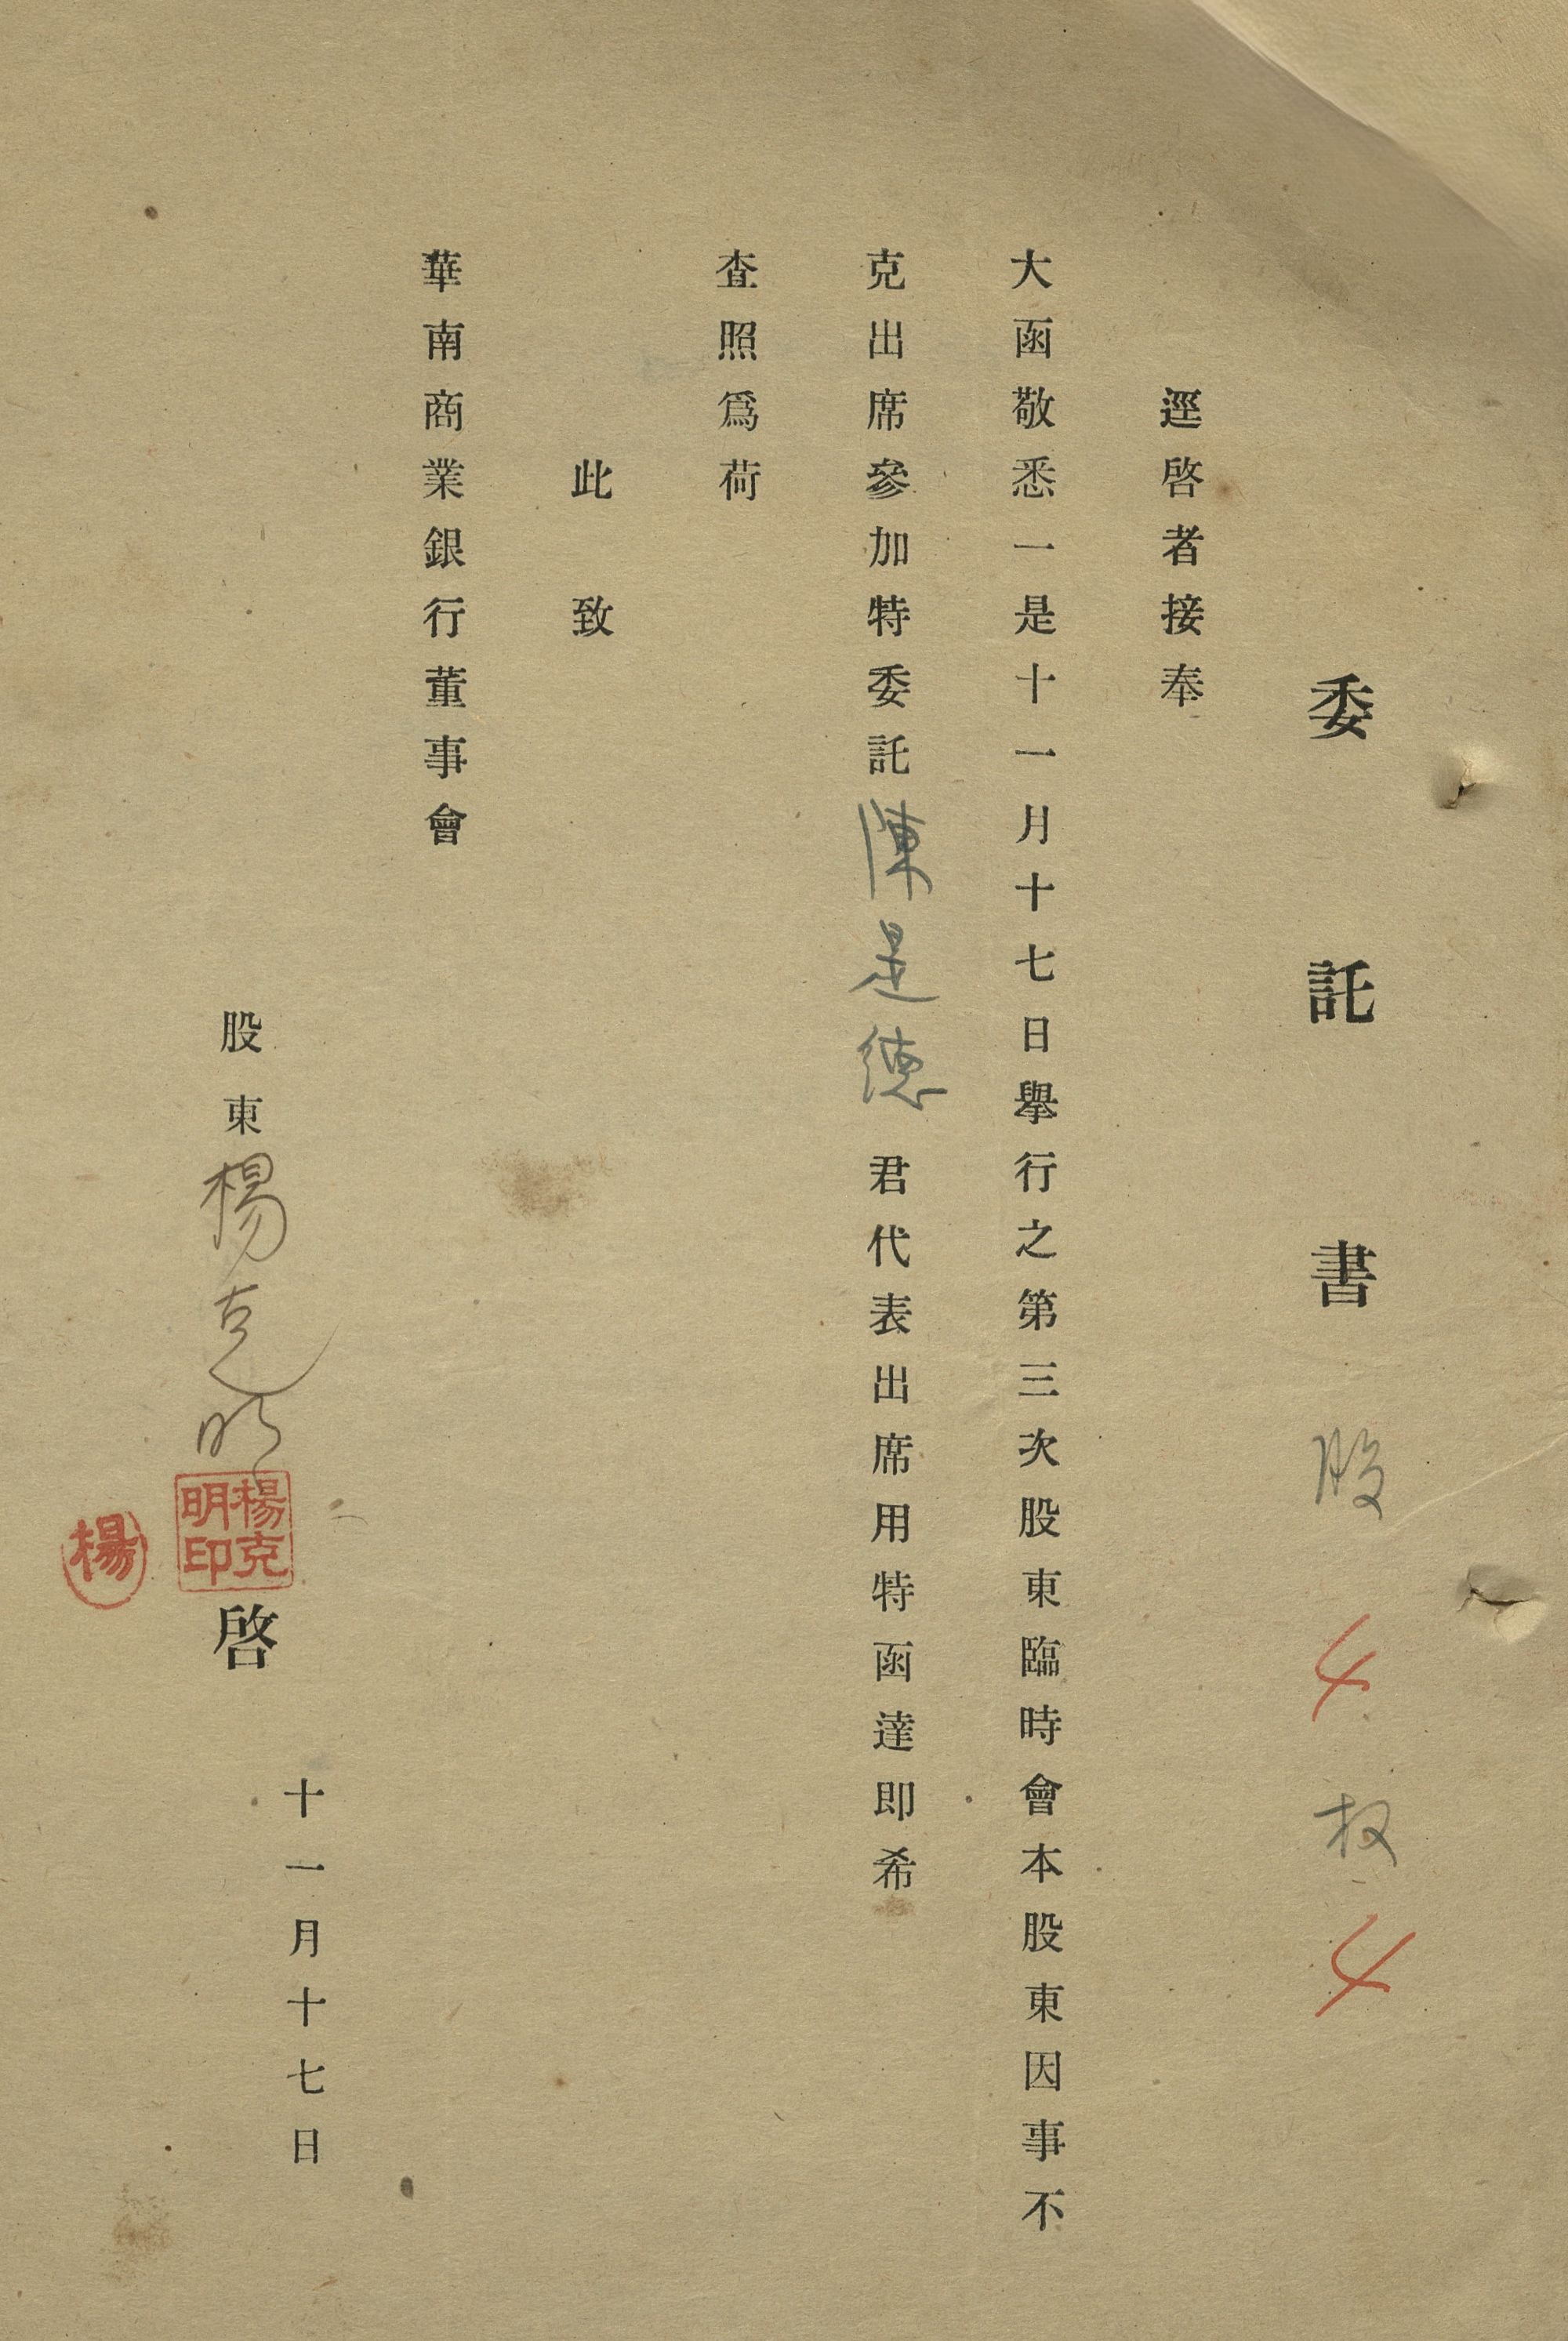 委託書 股 4 权 4
逕啓者接奉
大函敬悉一是十一月十七日舉行之第三次股東臨時會本股東因事不
克出席參加特委託陳是德君代表出席用特函達即希
查照爲荷
此致
華南商業銀行董事會
十一月十七日
股東楊克明啓
楊克
明印
楊